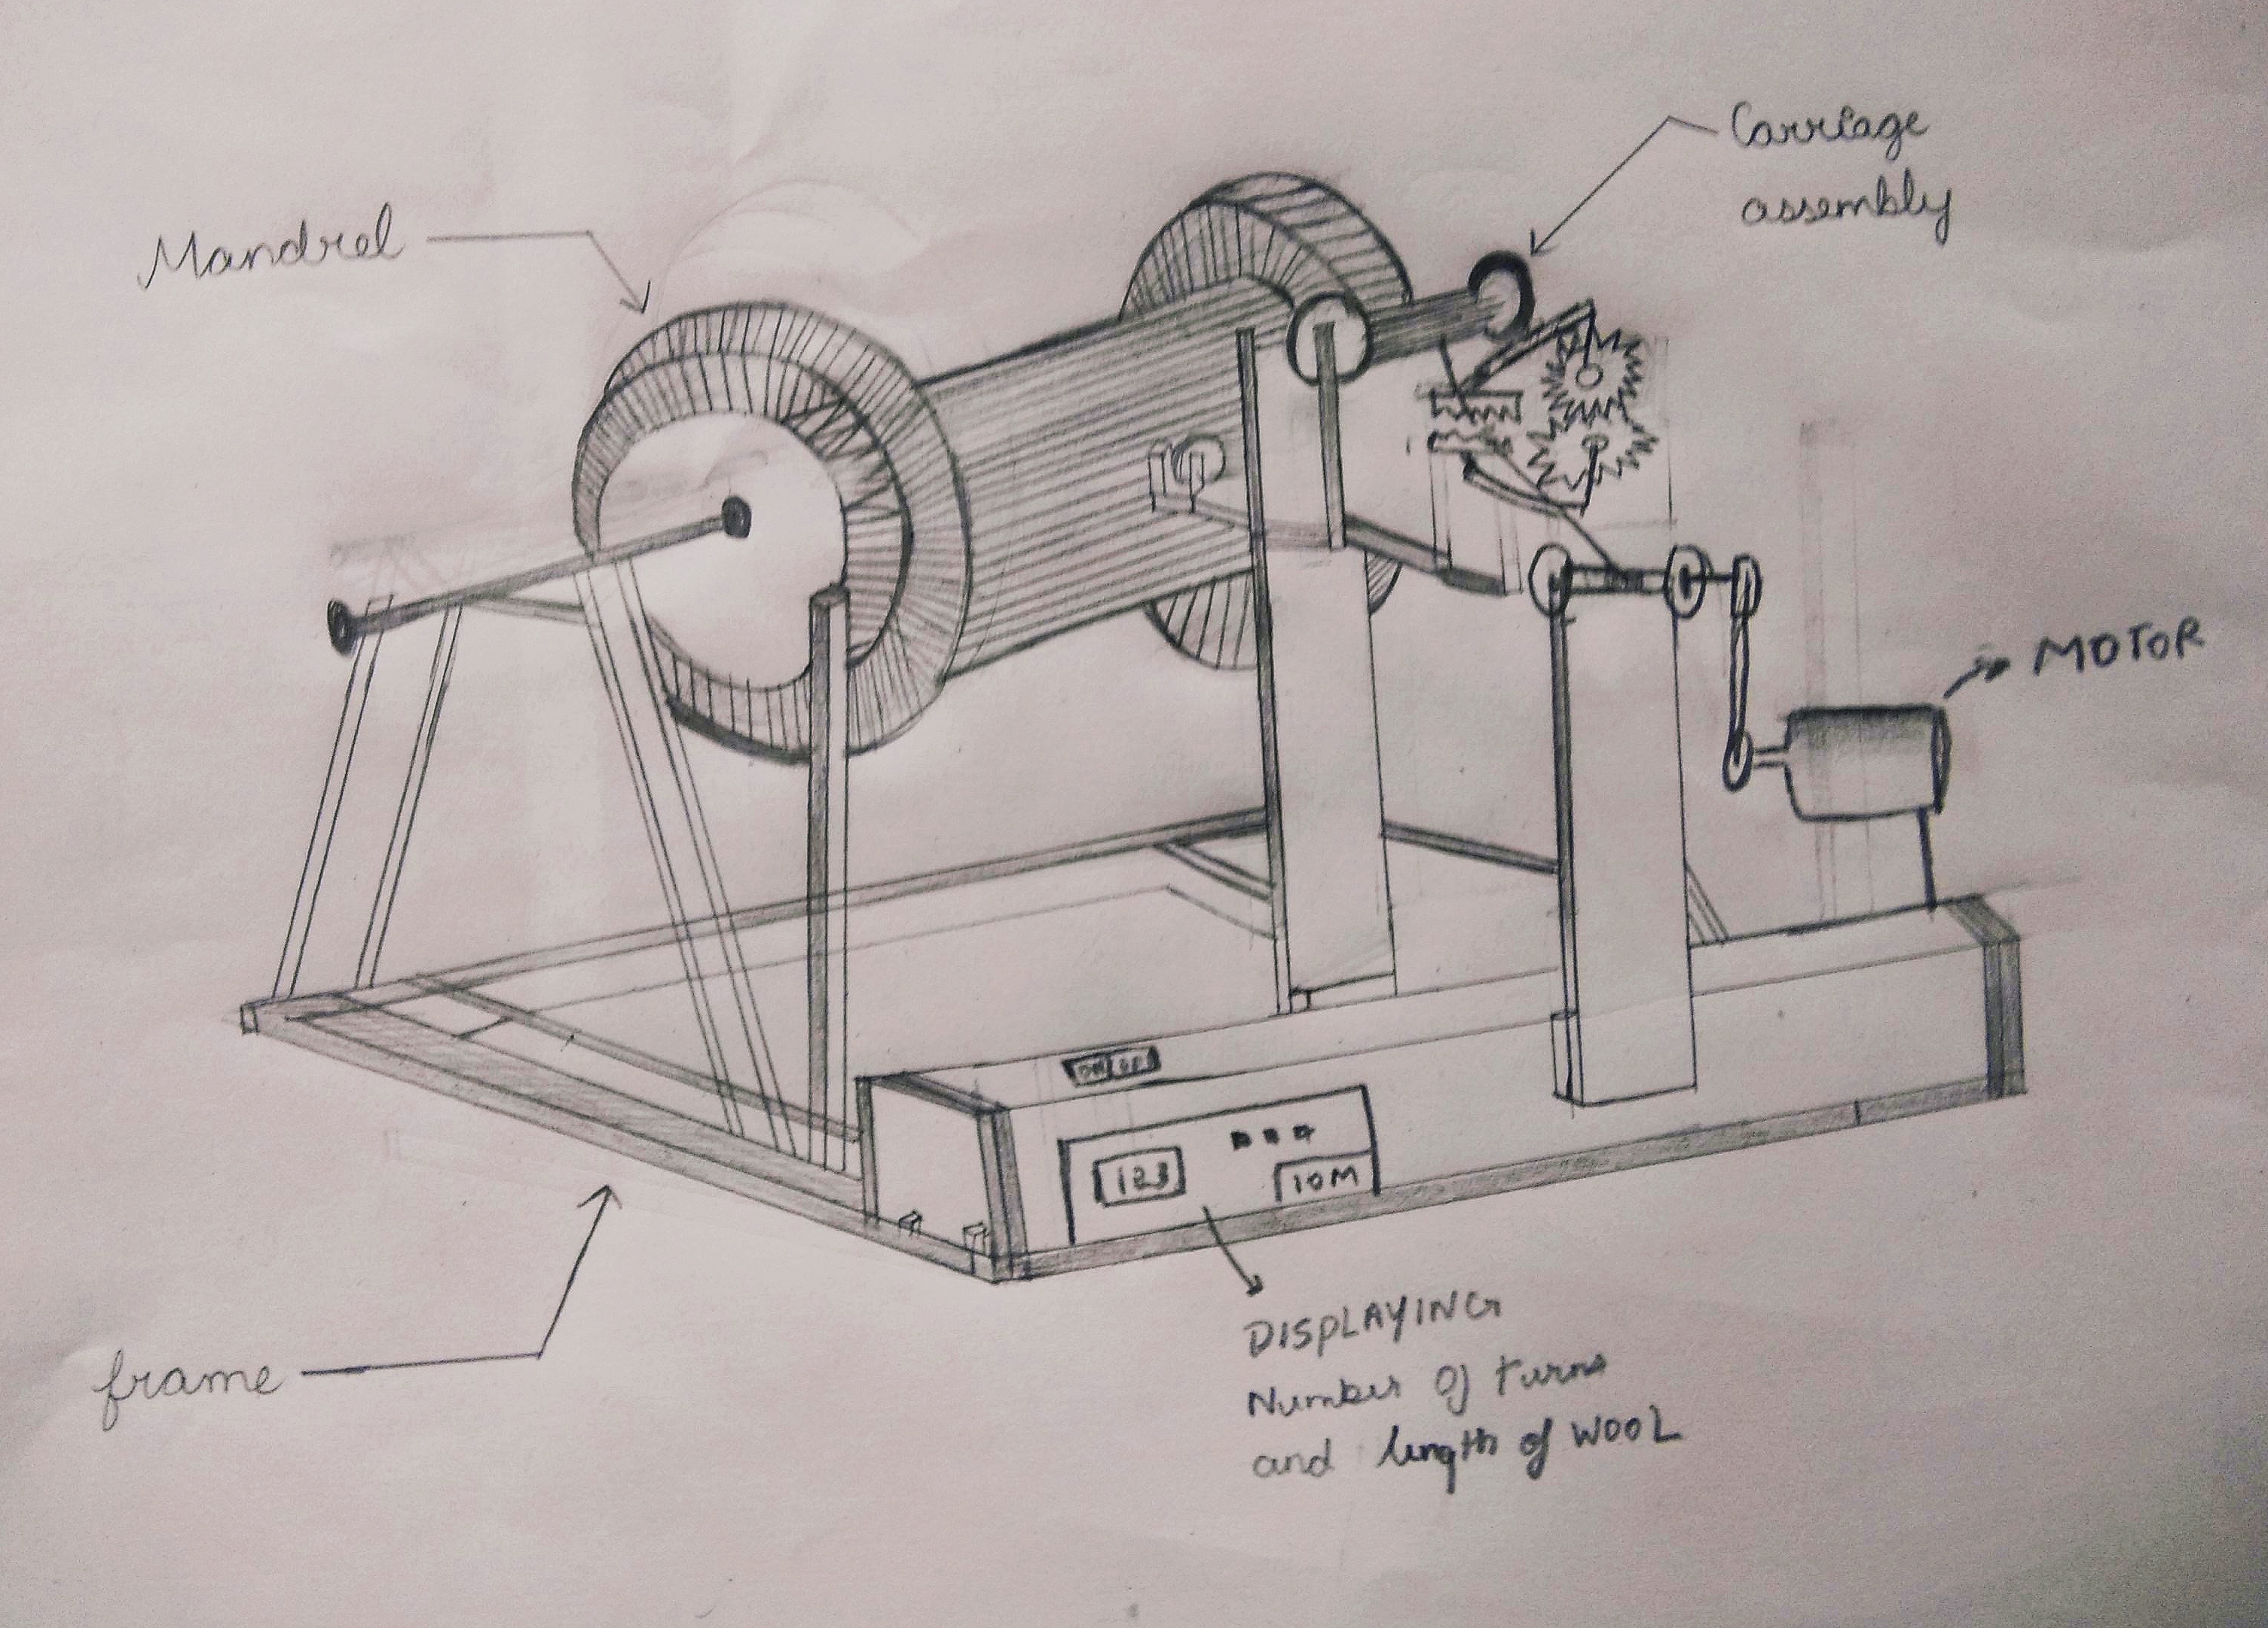 Carriage
assembly
Mandrel
MOTOR
ON OFF
123
10M
DISPLAYING
Number of turns
and length of WOOL
frame